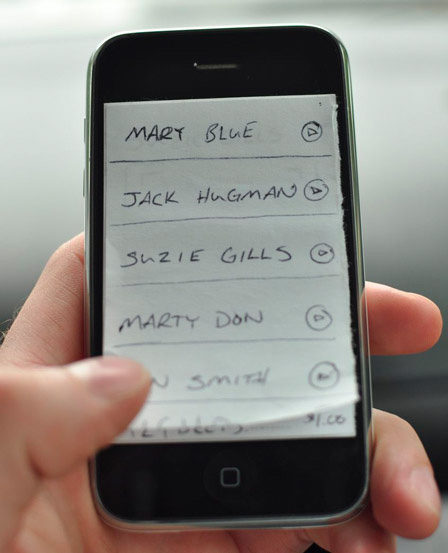 MARY BLUE
JACK HUGMAN
SUZIE GILLS
MARTY DON
N SMITH
$1.00